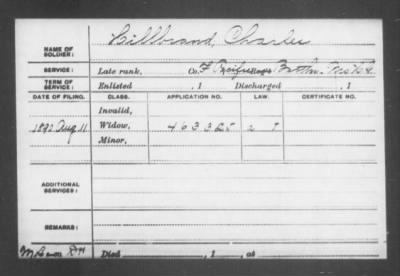 NAME OF SOLDIER: Billbrand, Charles
SERVICE: Late rank, Co. F Pacific Battn. Mo H G
TERM OF SERVICE: Enlisted , 1 Discharged , 1
DATE OF FILING. CLASS. APPLICATION NO. LAW. CERTIFICATE NO.
Invalid,
1890 Aug 11 Widow, 463325
Minor,
ADDITIONAL SERVICES:
REMARKS:
Died , 1 , at